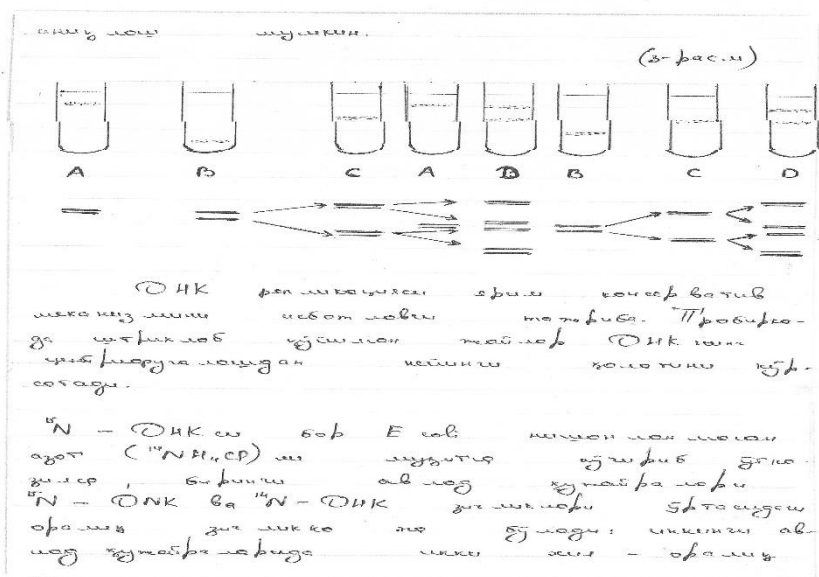 аниқлаш мумкин.
(3-расм)
A B C A D B C D
ДНК репликацияси ярим консерватив
механизмини исботловчи тажриба. Пробирка-
да штрихлаб қўйилган жойлар ДНК нинг
центрифугалашдан кейинги ҳолатини кўр-
сатади.
¹⁵N – ДНК си бор E coli нишонланмаган
азот (¹⁴NH₄Cl) ли муҳитга кўчириб ўтка-
зилса, биринчи авлод ҳужайралари
¹⁵N – ДNK ва ¹⁴N – ДНК зичликлари ўртасидаги
оралиқ зичликка эга бўлади: иккинчи ав-
лод ҳужайраларида икки хил – оралиқ